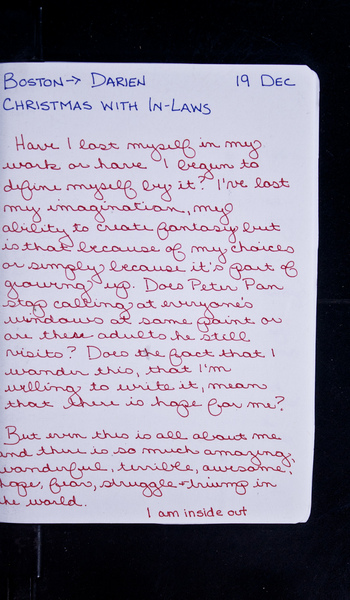 BOSTON → DARIEN 19 DEC
CHRISTMAS WITH IN-LAWS
Have I lost myself in my
work or have I begun to
define myself by it? I've lost
my imagination, my
ability to create fantasy but
is that because of my choices
or simply because it's part of
growing up. Does Peter Pan
stop calling at everyone's
windows at some point or
are there adults he still
visits? Does the fact that I
wonder this, that I'm
willing to write it, mean
that there is hope for me?
But even this is all about me
and there is so much amazing,
wonderful, terrible, awesome,
hope, fear, struggle + triump in
the world.
I am inside out